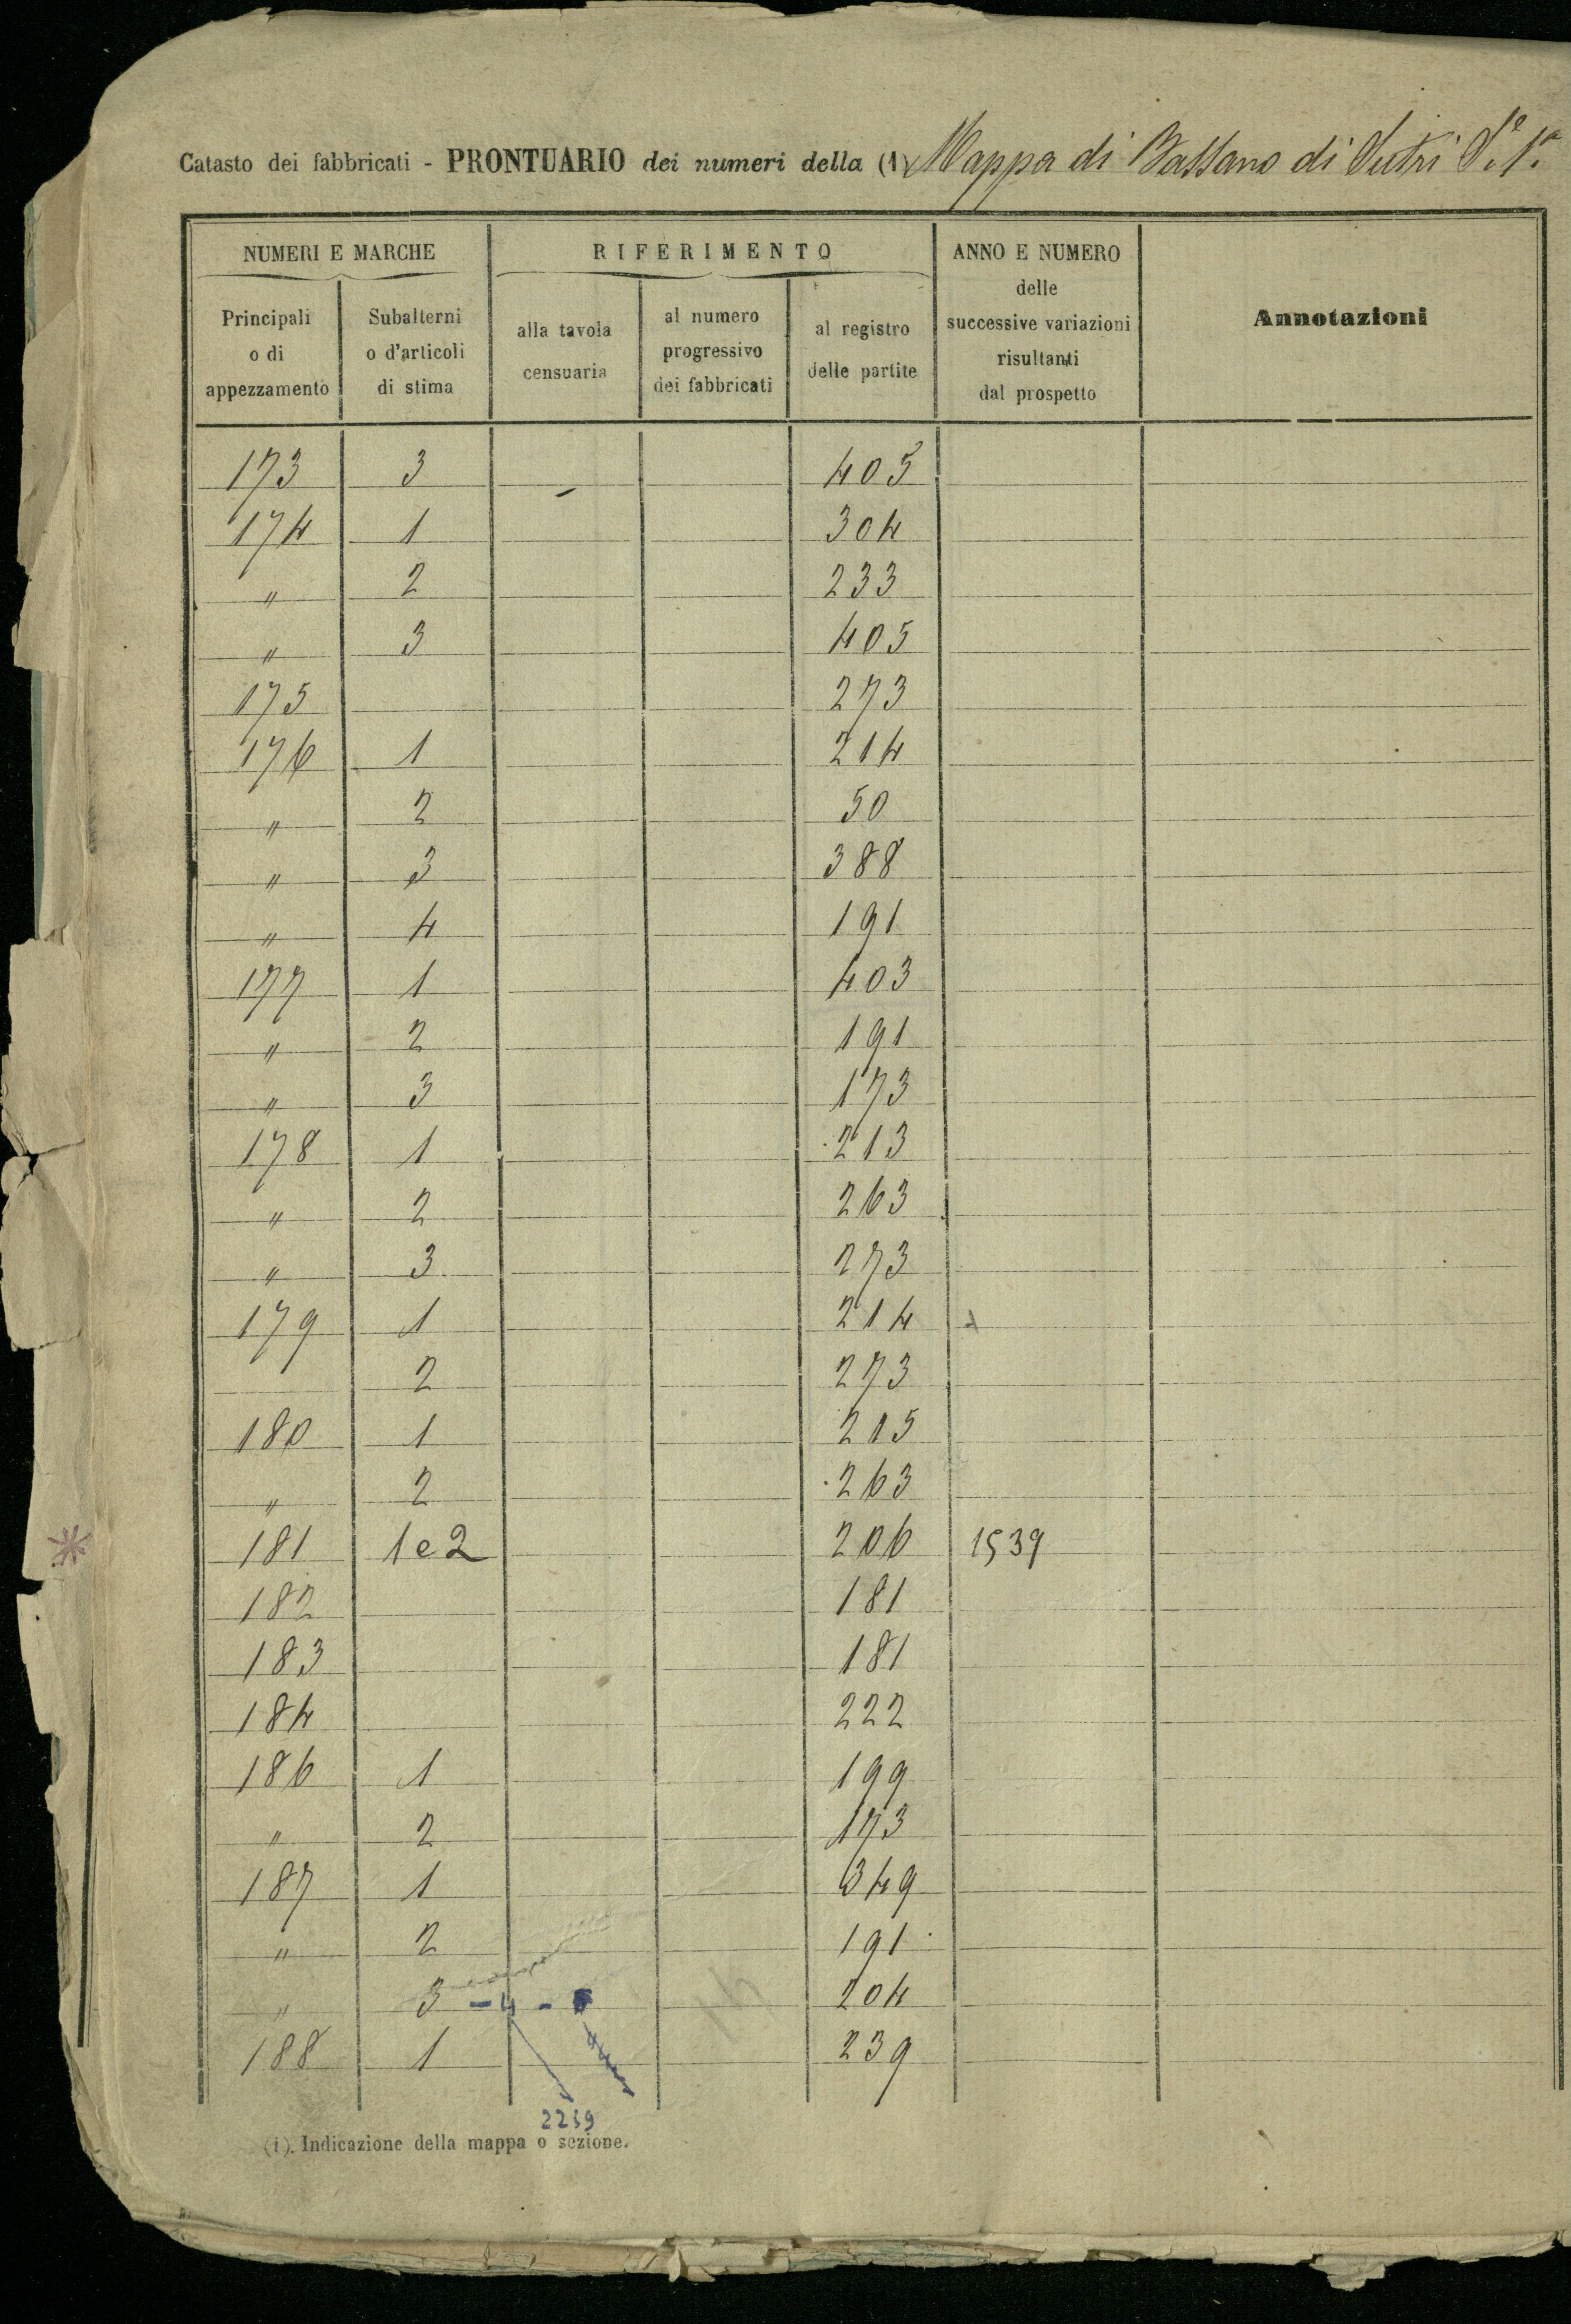 Catasto dei fabbricati - PRONTUARIO dei numeri della (1) Mappa di Bassano di Sutri S.e 1.a
NUMERI E MARCHE RIFERIMENTO ANNO E NUMERO delle successive variazioni risultanti dal prospetto Annotazioni
Principali o di appezzamento Subalterni o d'articoli di stima alla tavola censuaria al numero progressivo dei fabbricati al registro delle partite
173 3 405
174 1 304
" 2 233
" 3 405
175 273
176 1 214
" 2 50
" 3 388
" 4 191
177 1 403
" 2 191
" 3 173
178 1 213
" 2 263
" 3 273
179 1 214
2 273
180 1 215
" 2 263
181 1 e 2 206 1539
182 181
183 181
184 222
186 1 199
" 2 173
187 1 349
" 2 191
" 3 - 4 - 204
188 1 239
2239
(1). Indicazione della mappa o sezione.